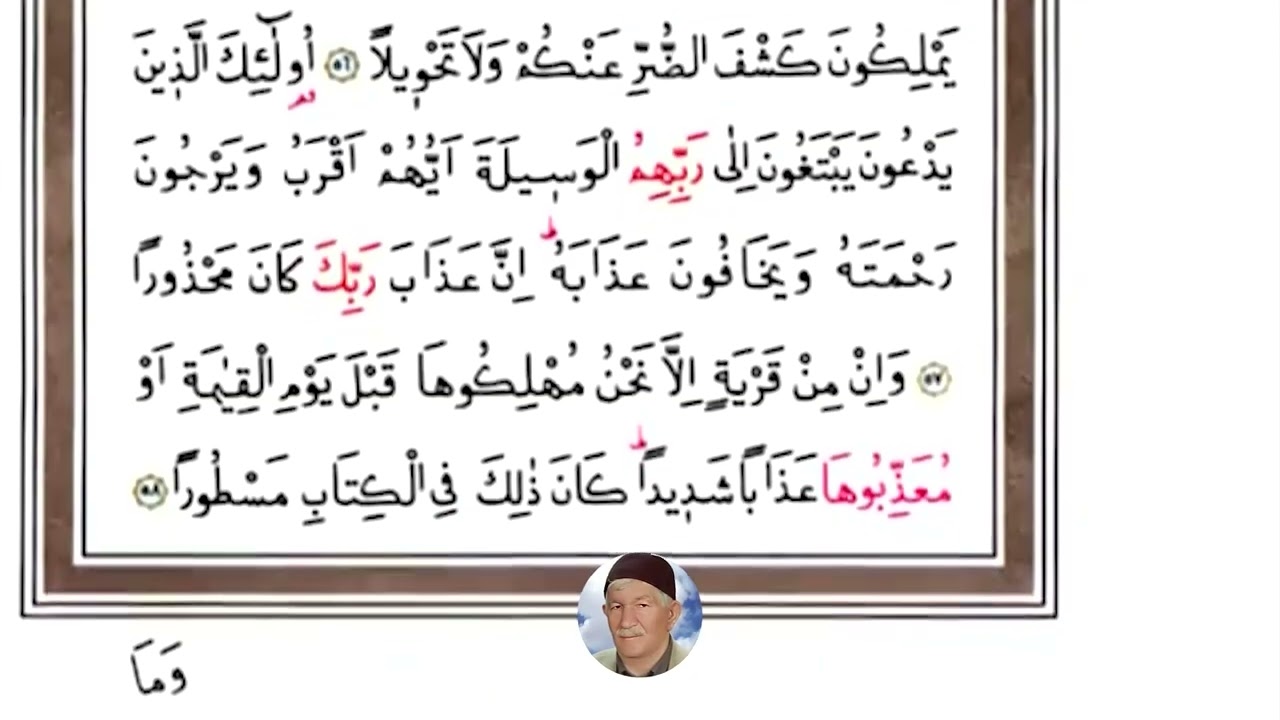 يَمْلِكُونَ كَشْفَ الضُّرِّ عَنْكُمْ وَلَا تَحْوٖيلاً ﴿٥٦﴾ اُو۬لٰٓئِكَ الَّذٖينَ
يَدْعُونَ يَبْتَغُونَ اِلٰى رَبِّهِمُ الْوَسٖيلَةَ اَيُّهُمْ اَقْرَبُ وَيَرْجُونَ
رَحْمَتَهُ وَيَخَافُونَ عَذَابَهُ ۜ اِنَّ عَذَابَ رَبِّكَ كَانَ مَحْذُوراً
﴿٥٧﴾ وَاِنْ مِنْ قَرْيَةٍ اِلَّا نَحْنُ مُهْلِكُوهَا قَبْلَ يَوْمِ الْقِيٰمَةِ اَوْ
مُعَذِّبُوهَا عَذَاباً شَدٖيداً ؕ كَانَ ذٰلِكَ فِي الْكِتَابِ مَسْطُوراً ﴿٥٨﴾
وَمَا